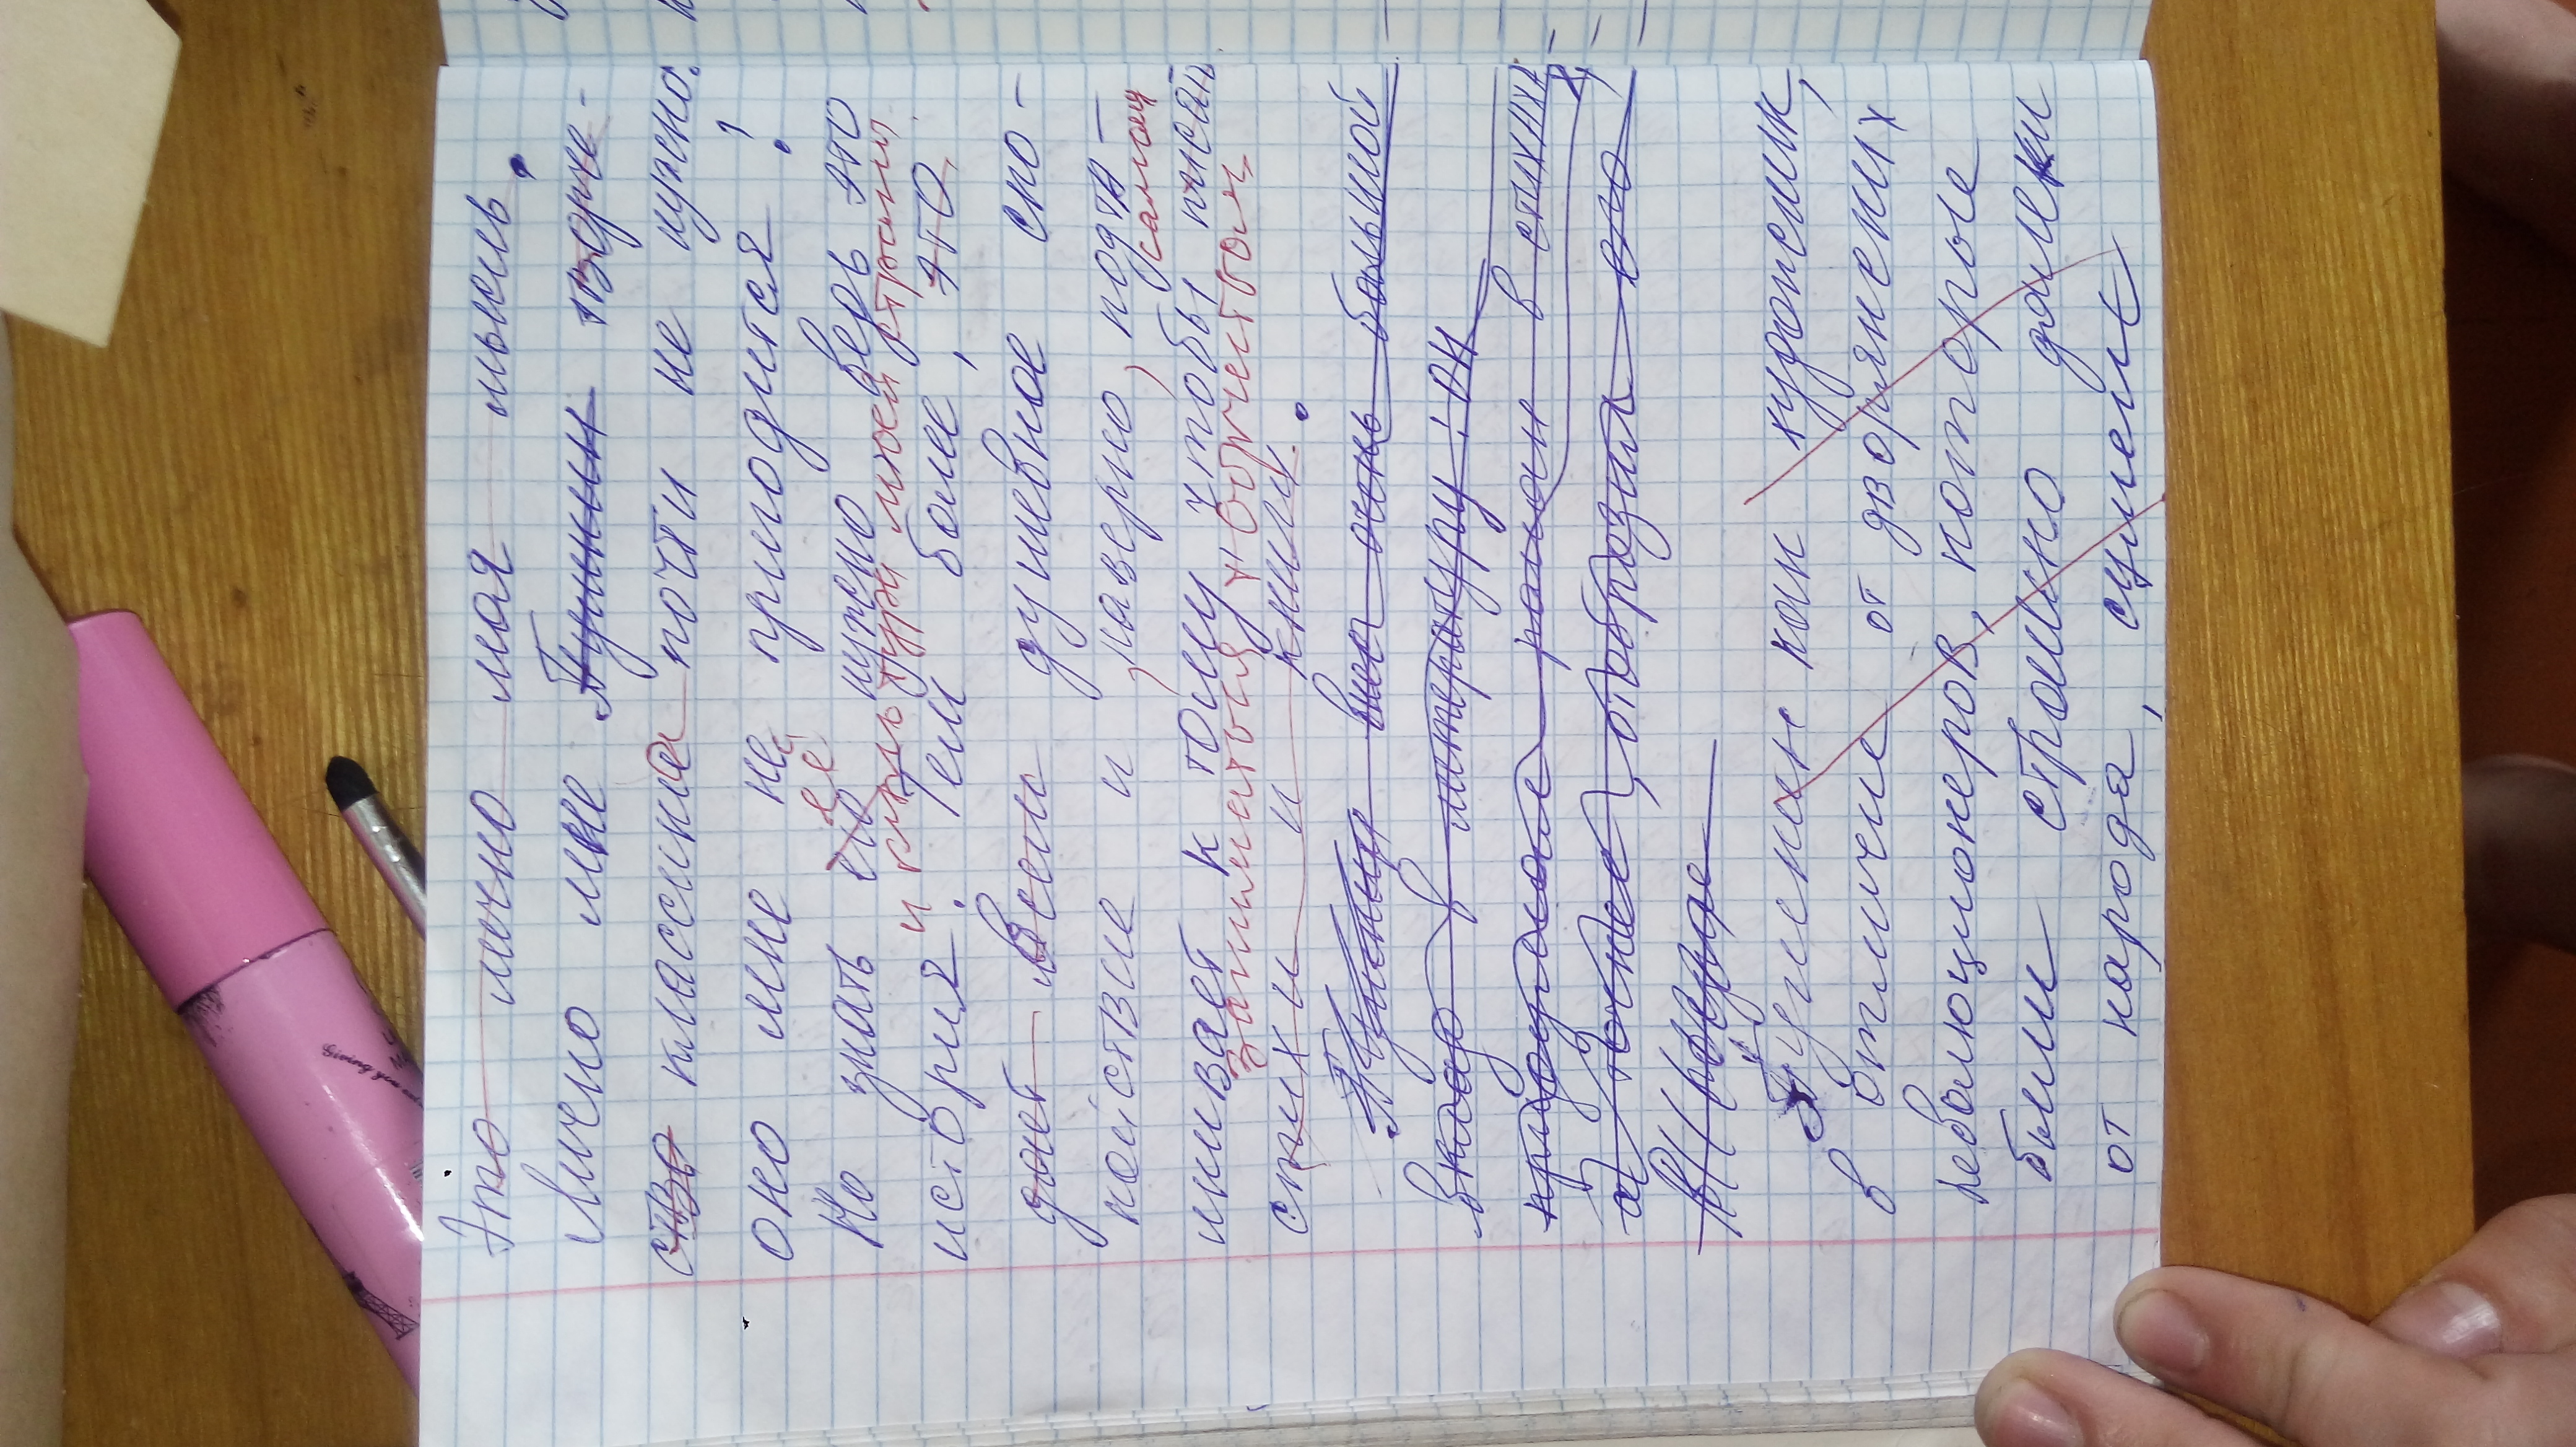 Это лично моя мысль.
Лично мне Пушкин творче-
ство классика почти не нужно.
оно мне не пригодится!
её
Но знать его нужно ведь это
и культура моей страны
история. Тем более, это
дает всем душевное спо-
койствие и, наверно, подта-
самому
лкивает к тому, чтобы писать
заниматься творчеством
стихи и книги.
Пушкин внес очень большой
вклад в литературу: он
придумал роман в стихах,
а точнее, отобразил его
Пушкин как художник,
в отличие от дворянских
революционеров, которые
были страшно далеки
от народа, сумел